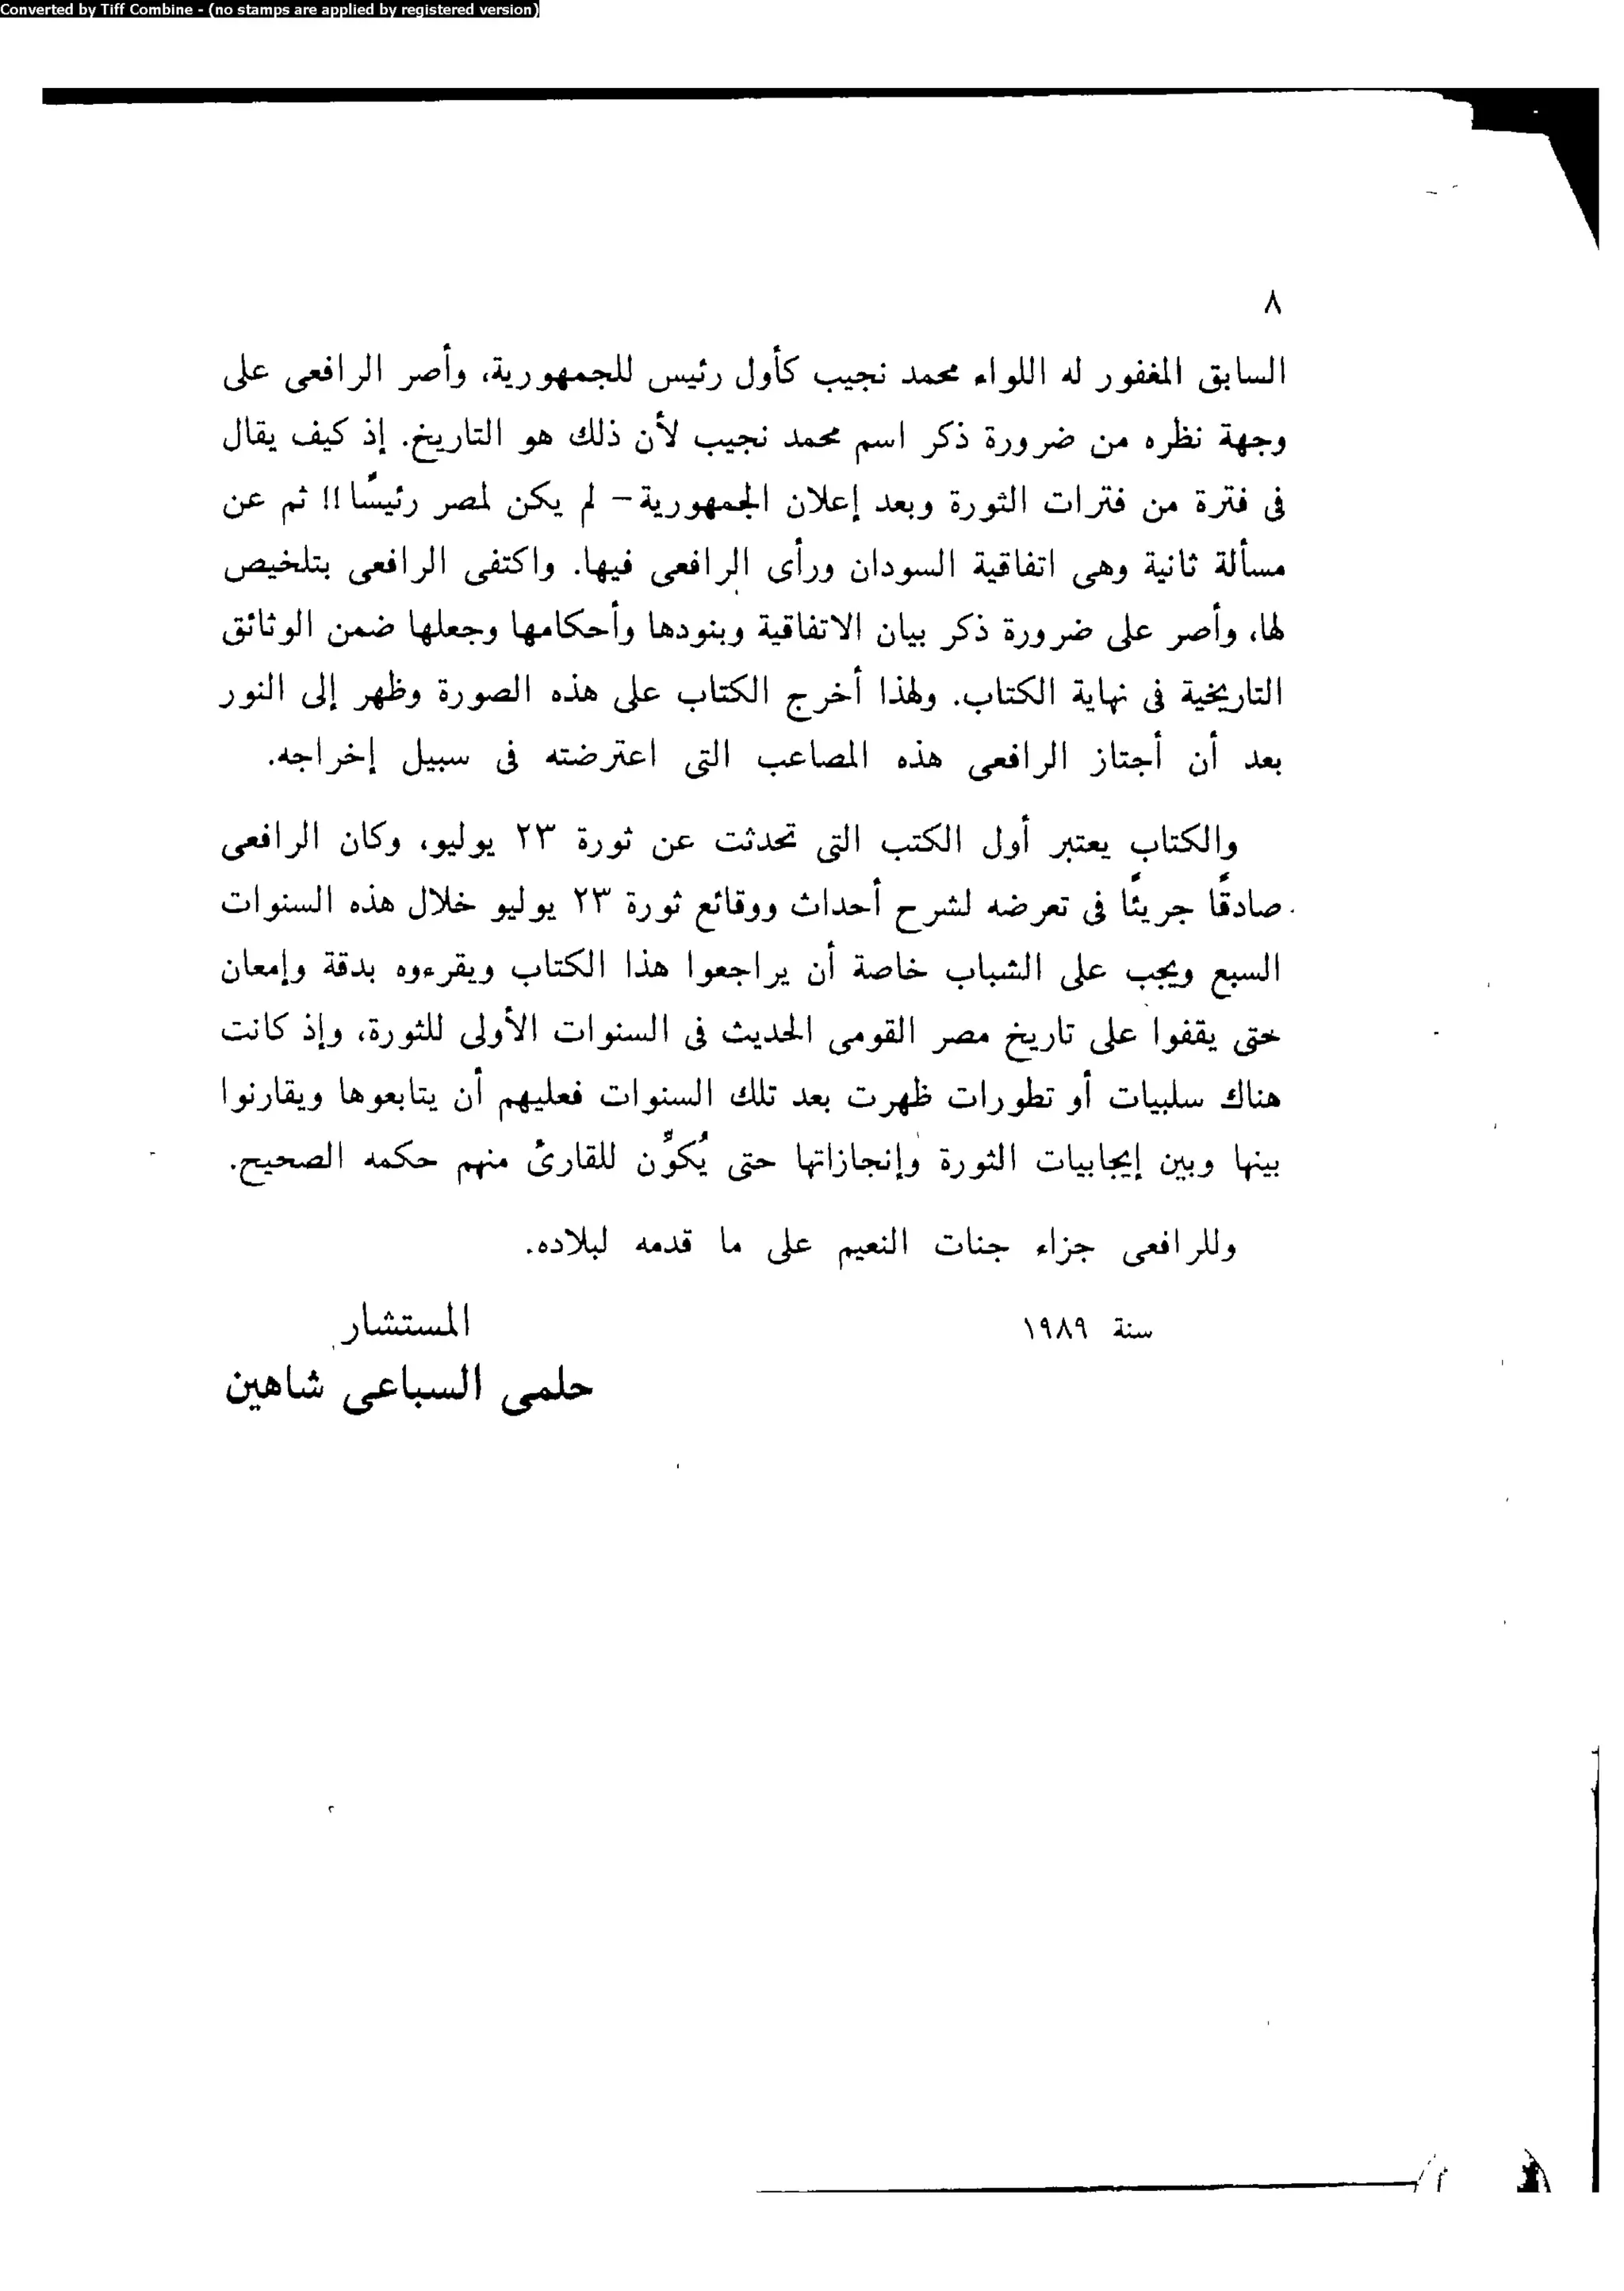 Converted by Tiff Combine - (no stamps are applied by registered version)
٨
السابق المغفور له اللواء محمد نجيب كأول رئيس للجمهورية، وأصر الرافعى على
وجهة نظره من ضرورة ذكر اسم محمد نجيب لأن ذلك هو التاريخ. إذ كيف يقال
فى فترة من فترات الثورة وبعد إعلان الجمهورية – لم يكن لمصر رئيسًا !! ثم عن
مسألة ثانية وهى اتفاقية السودان ورأى الرافعى فيها. واكتفى الرافعى بتلخيص
لها، وأصر على ضرورة ذكر بيان الاتفاقية وبنودها وأحكامها وجعلها ضمن الوثائق
التاريخية فى نهاية الكتاب. ولهذا أخرج الكتاب على هذه الصورة وظهر إلى النور
بعد أن أجتاز الرافعى هذه المصاعب التى اعترضته فى سبيل إخراجه.
والكتاب يعتبر أول الكتب التى تحدثت عن ثورة ٢٣ يوليو، وكان الرافعى
صادقًا جريئًا فى تعرضه لشرح أحداث ووقائع ثورة ٢٣ يوليو خلال هذه السنوات
السبع ويجب على الشباب خاصة أن يراجعوا هذا الكتاب ويقرءوه بدقة وإمعان
حتى يقفوا على تاريخ مصر القومى الحديث فى السنوات الأولى للثورة، وإذ كانت
هناك سلبيات أو تطورات ظهرت بعد تلك السنوات فعليهم أن يتابعوها ويقارنوا
بينها وبين إيجابيات الثورة وإنجازاتها حتى يُكوِّن للقارئ منهم حكمه الصحيح.
وللرافعى جزاء جنات النعيم على ما قدمه لبلاده.
سنة ١٩٨٩
المستشار
حلمى السباعى شاهين